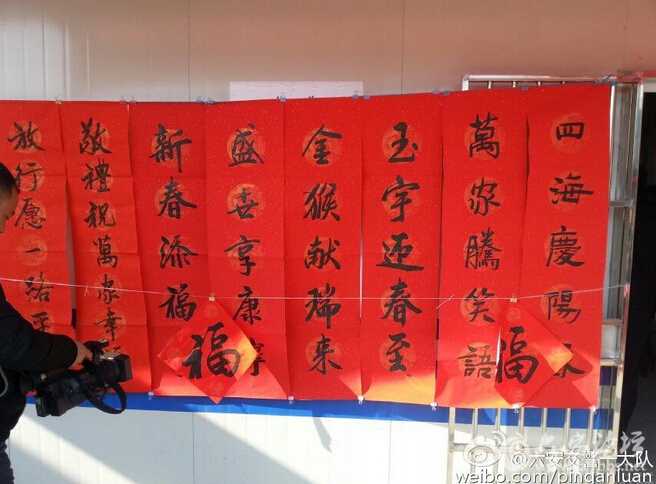 四海慶陽
萬家騰笑語
玉宇迎春至
金猴献瑞来
盛世享康寧
新春添福
敬禮祝萬家幸
放行愿一路平
福
福
@六安交警一大队
weibo.com/pinganluan